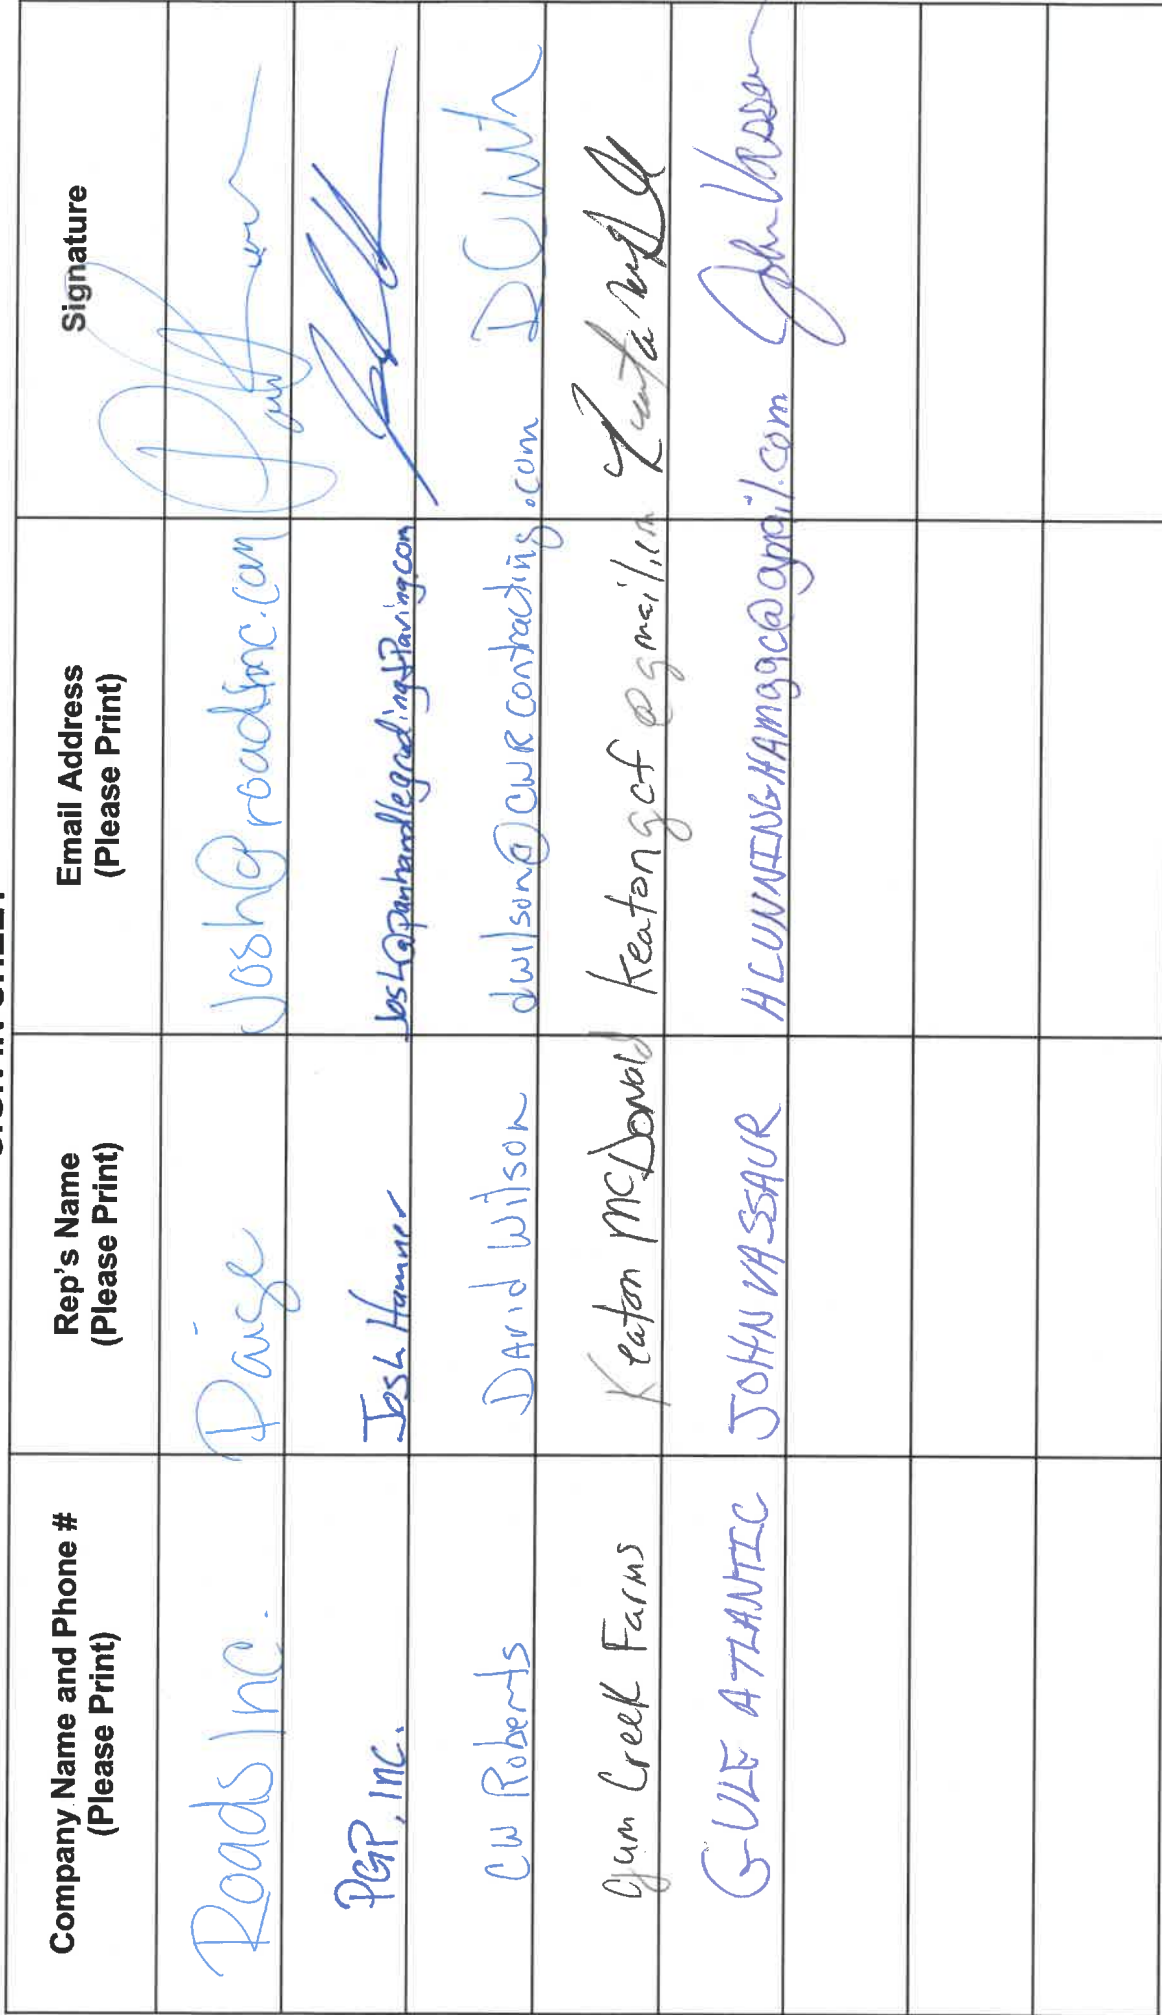 Company Name and Phone # (Please Print) Rep's Name (Please Print) Email Address (Please Print) Signature
Roads Inc. Paige Josh@roadsinc.com
PGP, Inc. Josh Hamner Josh@Panhandlegrading+Paving.com
CW Roberts David Wilson dwilson@CWRcontracting.com
Gum Creek Farms Keaton McDonald Keatongcf@gmail.com
GULF ATLANTIC JOHN VASSAUR HCUNNINGHAMggc@gmail.com John Vassaur